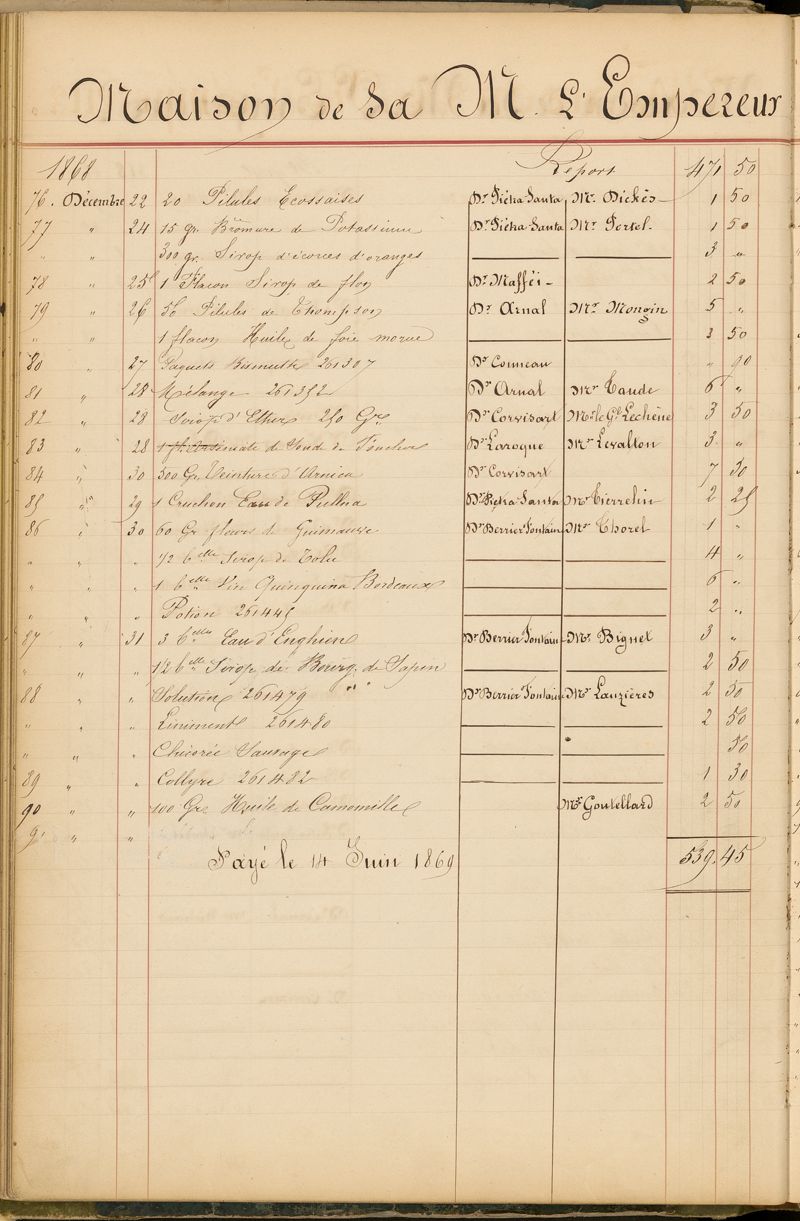 Maison de Sa M. L'Empereur
1868 Report 471 50
76. Décembre 22 20 Pilules Ecossaises Dr Piétra-Santa Mr. Dickès 1 50
77 " 24 15 gr. Brômure de Potassium Dr Piétra-Santa Mr Fortel. 1 50
" " 300 gr. Sirop d'écorces d'oranges 3 "
78 " 25 1 Flacon Sirop de flon Dr Mafféi 2 50
79 " 26 50 Pilules de Thompson Dr Arnal Mr Mongin 5 "
" " 1 flacon Huile de foie morue 3 50
80 " 27 Paquets Bismuth 261307 Dr Conneau " 90
81 " 28 Mélange 261352 Dr Arnal Mr Taude 6 "
82 " 28 Sirop d'Ether 250 Gr Dr Corvisart Mr le Gl Lechène 3 50
83 " 28 1 fl. Arséniate de Soude de Dr Laroque Mr Levalton 3 "
84 " 30 500 Gr Teinture d'Arnica Dr Corvisart 7 50
85 " 29 1 Cruchon Eau de Pullna Dr Piétra Santa Mr Tierrelin 2 25
86 " 30 60 Gr fleurs de Guimauve Dr Berrier Fontaine Mr Thoret 1 "
" " " 1/2 blle Sirop de Tolu 4 "
" " " 1 blle Vin Quinquina Bordeaux 6 "
" " " Potion 261446 2 "
87 " 31 3 blles Eau d'Enghien Dr Berrier Fontaine Mr Bignet 3 "
" " " 1/2 blle Sirop de Bourg. de Sapin 2 50
88 " " Solution 261479 " " Dr Berrier Fontaine Mr Lauzières 2 50
" " " Liniment 261480 2 50
" " " Chicorée Sauvage 50
89 " " Collyre 261482 1 30
90 " " 100 Gr Huile de Camomille Mr Goutellard 2 50
9. " "
Payé le 14 Juin 1869 539.45